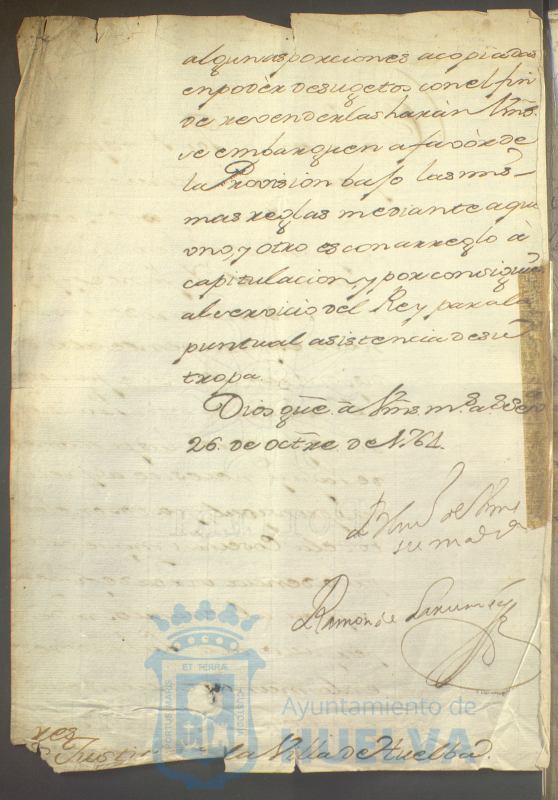 algunas porciones acopiadas
en poder de sugetos con el fin
de revenderlas harán Vms.
se embarguen a favor de
la Provision bajo las mis-
mas reglas mediante a que
uno, y otro es con arreglo à
capitulacion, y por consigte.
al servicio del Rey para la
puntual asistencia de su
tropa.
Dios gûe. â Vms ms. as. Sevª
26. de octre. de 1761.
de Vms
su mar
Ramon de Larumbe
res
Justicia de la Villa de Huelba.
ET TERRÆ
PORTUS MARIS
CUSTODIA
Ayuntamiento de
HUELVA